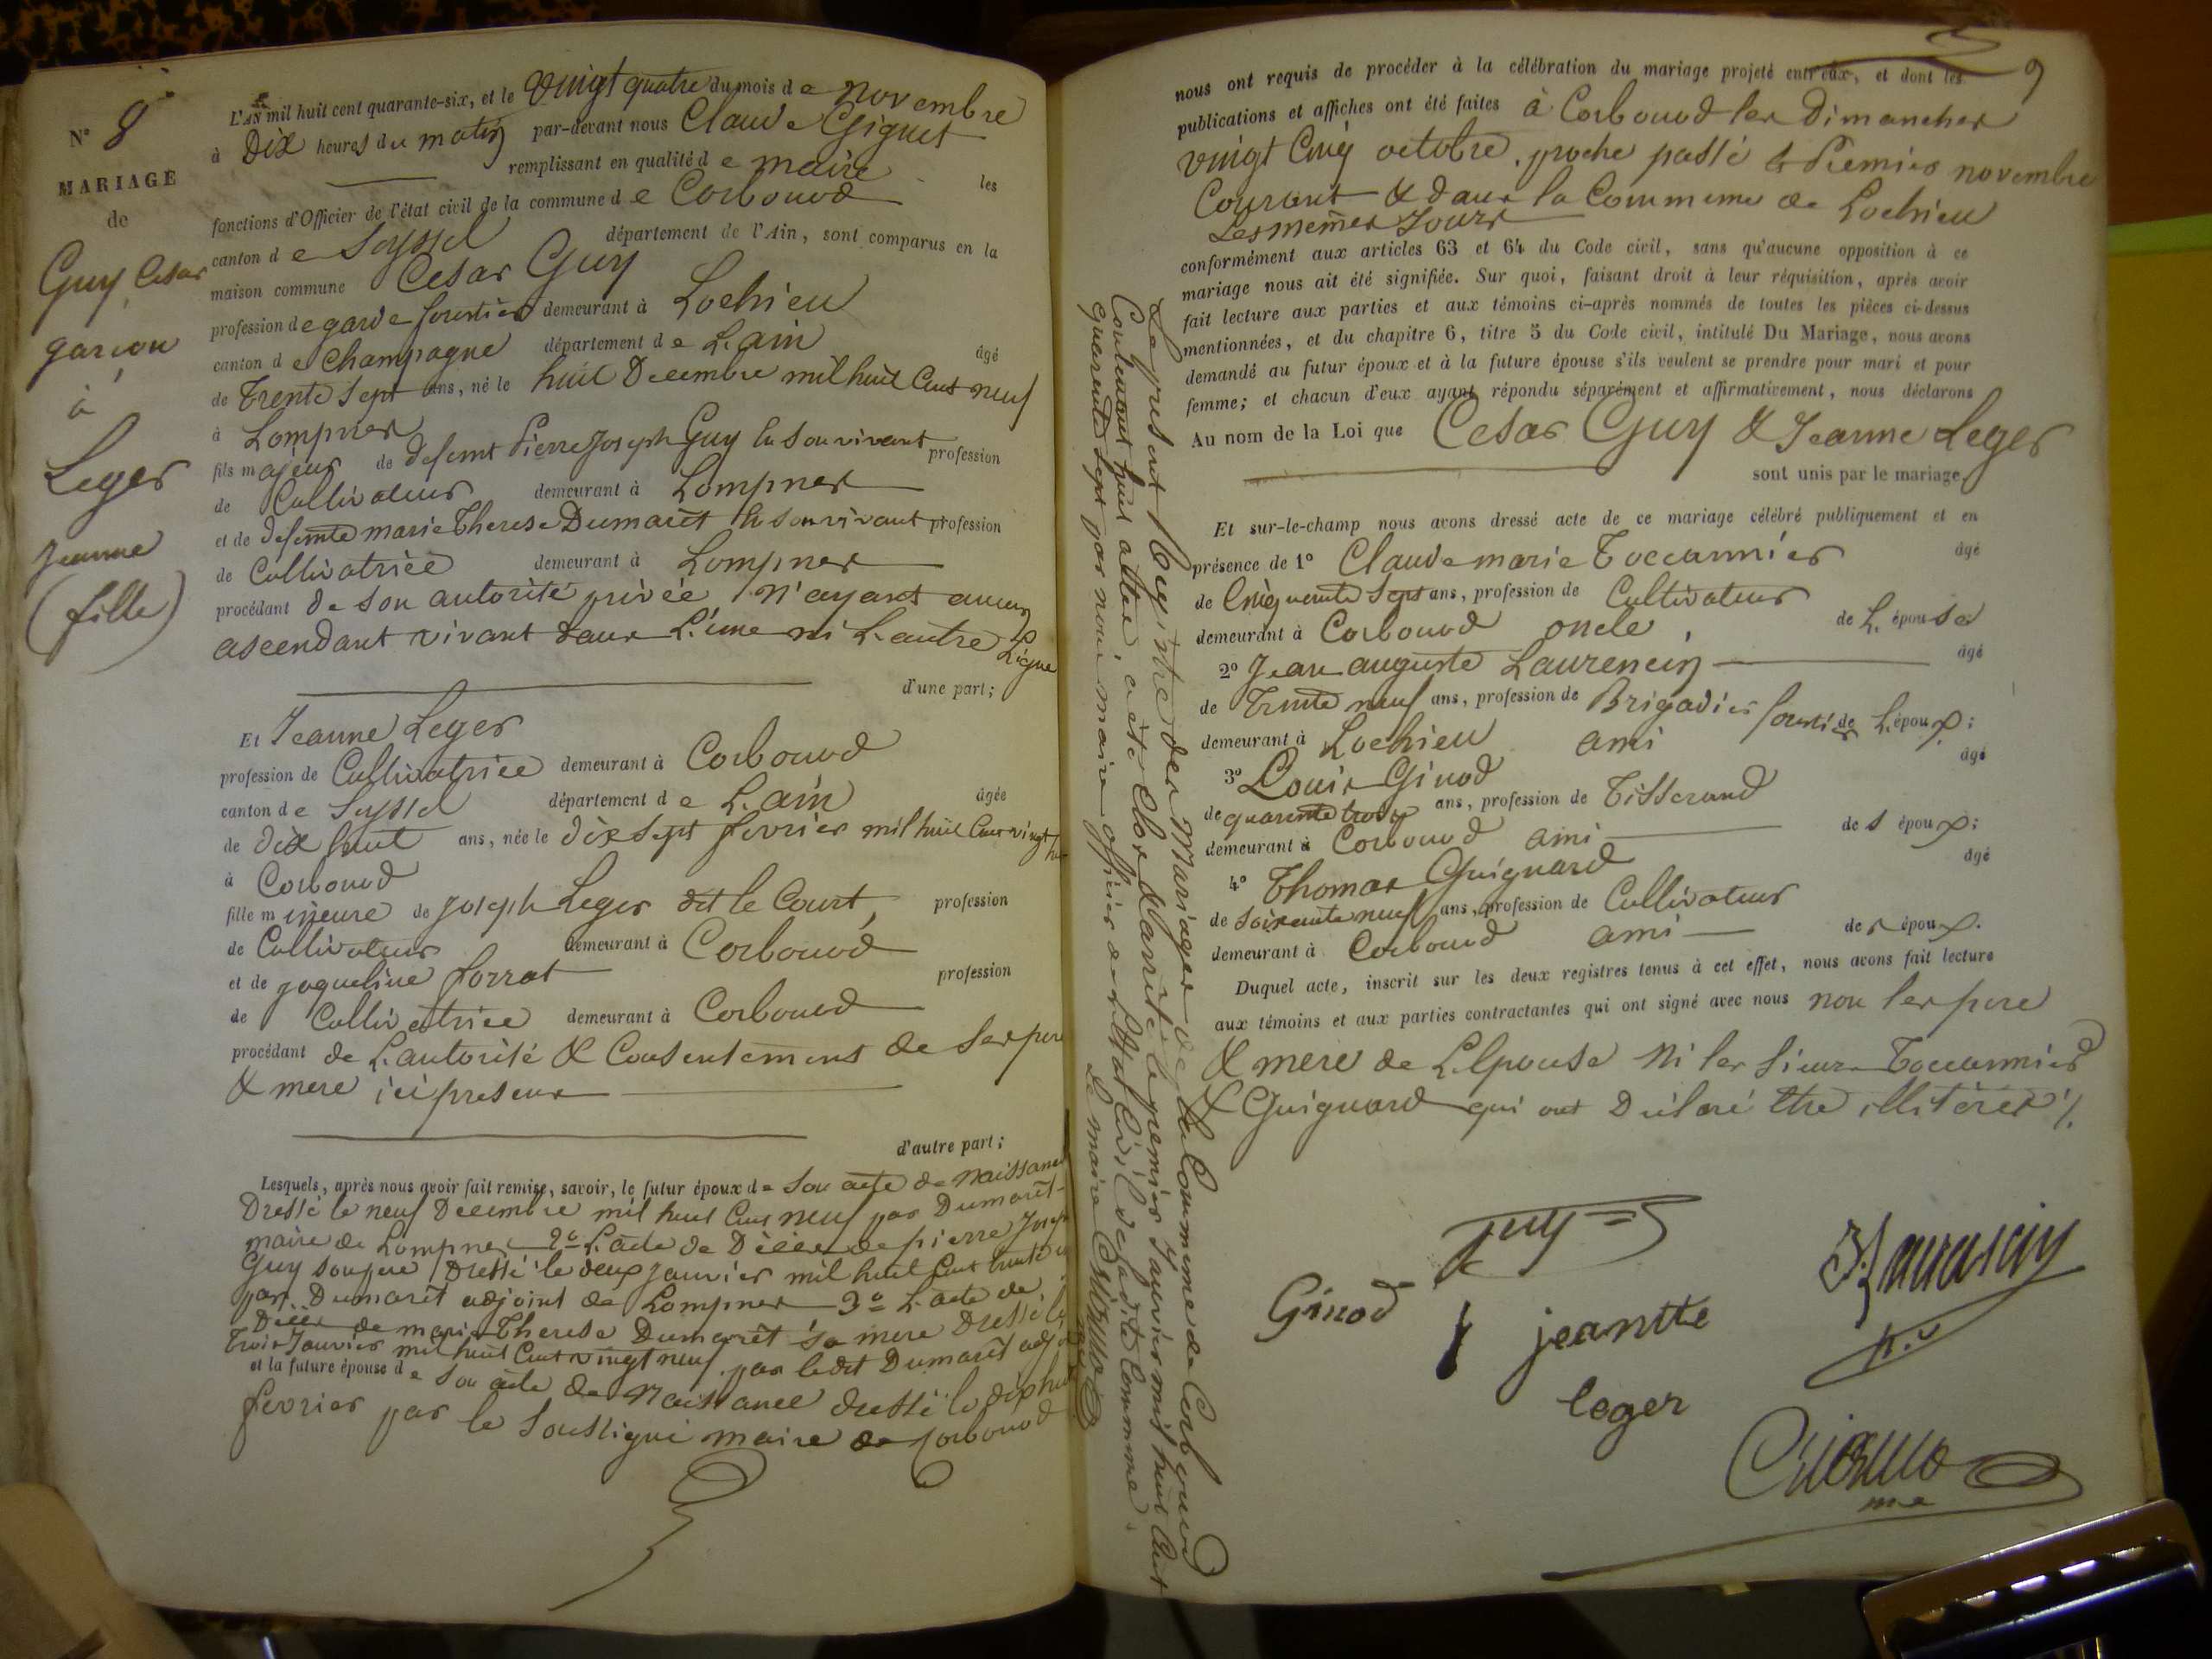 N° 8
MARIAGE
de
Guy Cesar
garcon
à
Leger
Jeanne
(fille)
L'AN mil huit cent quarante-six, et le vingt quatre du mois de novembre
à Dix heures du matin par-devant nous Claude Giguet
remplissant en qualité de maire les
fonctions d'Officier de l'état civil de la commune de Corbonod
canton de Seyssel département de l'Ain, sont comparus en la
maison commune Cesar Guy
profession de garde forestier demeurant à Lochieu
canton de Champagne département de L'ain âgé
de Trente Sept ans, né le huit Decembre mil huit Cent neuf
à Lompnes
fils majeur de defunt Pierre Joseph Guy En son vivant profession
de Cultivateur demeurant à Lompnes
et de defunte marie Therese Dumarêt En son vivant profession
de Cultivatrice demeurant à Lompnes
procédant de son autorité privée n'ayant aucun
ascendant vivant dans L'une ni L'autre Ligne
d'une part;
Et Jeanne Leger
profession de Cultivatrice demeurant à Corbonod
canton de Seyssel département de L'ain âgée
de dix huit ans, née le dix Sept fevrier mil huit Cent vingt huit
à Corbonod
fille mineure de Joseph Leger dit le Court, profession
de Cultivateur demeurant à Corbonod
et de Jaqueline forrat profession
de Cultivatrice demeurant à Corbonod
procédant de L'autorité & Consentement de Ses pere
& mere ici presens
d'autre part;
Lesquels, après nous avoir fait remise, savoir, le futur époux de Son acte de Naissance
Dressé le neuf Decembre mil huit Cent neuf par Dumarêt
maire de Lompnes 2° L'acte de Décès de pierre Joseph
Guy son pere Dressé le deux Janvier mil huit Cent trente
par Dumarêt adjoint de Lompnes 3° L'acte de
Décès de marie Therese Dumarêt sa mere Dressé le
Trois Janvier mil huit Cent vingt neuf par ledit Dumarêt adjoint
et la future épouse de Son acte de Naissance dressé le dix huit
fevrier par le Soussigné maire de Corbonod
9
nous ont requis de procéder à la célébration du mariage projeté entr'eux, et dont les
publications et affiches ont été faites à Corbonod les Dimanches
vingt Cinq octobre proche passé & Premier novembre
Courant & dans la Commune de Lochieu
Les memes Jours
conformément aux articles 63 et 64 du Code civil, sans qu'aucune opposition à ce
mariage nous ait été signifiée. Sur quoi, faisant droit à leur réquisition, après avoir
fait lecture aux parties et aux témoins ci-après nommés de toutes les pièces ci-dessus
mentionnées, et du chapitre 6, titre 5 du Code civil, intitulé Du Mariage, nous avons
demandé au futur époux et à la future épouse s'ils veulent se prendre pour mari et pour
femme; et chacun d'eux ayant répondu séparément et affirmativement, nous déclarons
Au nom de la Loi que Cesar Guy & Jeanne Leger
sont unis par le mariage.
Et sur-le-champ nous avons dressé acte de ce mariage célébré publiquement et en
présence de 1° Claude marie Toccannier âgé
de Cinquante Sept ans, profession de Cultivateur
demeurant à Corbonod oncle de L'épouse
2° Jean auguste Laurencin âgé
de Trente neuf ans, profession de Brigadier forestier
demeurant à Lochieu ami de L'époux;
3° Louis Ginod âgé
de quarente trois ans, profession de Tisserand
demeurant à Corbonod ami de s époux;
4° Thomas Guignard âgé
de soixante neuf ans, profession de Cultivateur
demeurant à Corbonod ami de s époux.
Duquel acte, inscrit sur les deux registres tenus à cet effet, nous avons fait lecture
aux témoins et aux parties contractantes qui ont signé avec nous non les pere
& mere de L'Epouse Ni les Sieurs Toccannier
& Guignard qui ont Déclaré Etre illiterés %.
Guy
Ginod
jeantte
leger
Le present Registre des Mariages de la Commune de Corbonod
Contenant huit actes, a été Clos & arrêté le premier Janvier mil huit Cent
quarente Sept par nous maire officier de l'etat Civil de ladite Commune.
Le maire